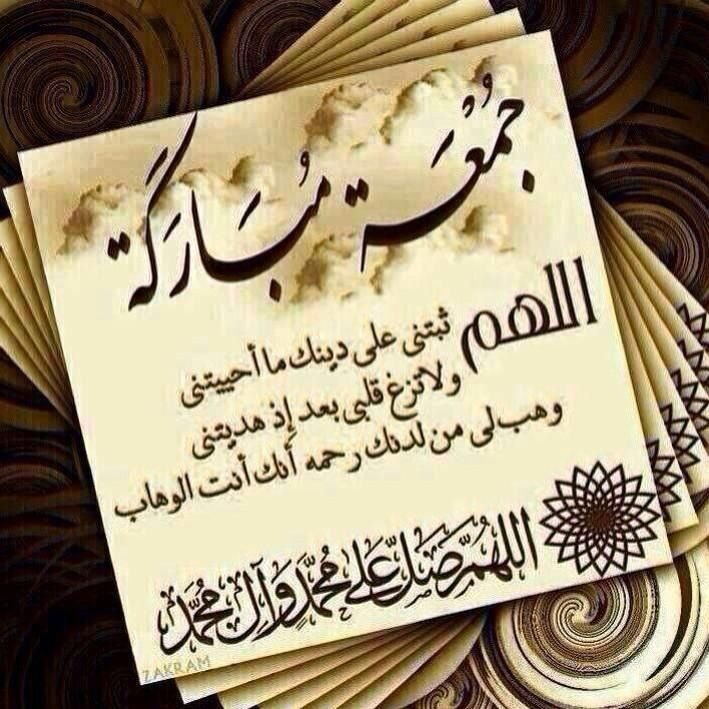 جُمُعَة مُبَارَكَة
اللهم ثبتنى على دينك ما أحييتنى
ولاتزغ قلبى بعد إذ هديتنى
وهب لى من لدنك رحمه أنك أنت الوهاب
اللهُمَّ صَلِّ عَلى مُحمَّدٍ وَآلِ مُحمَّد
ZAKRAM